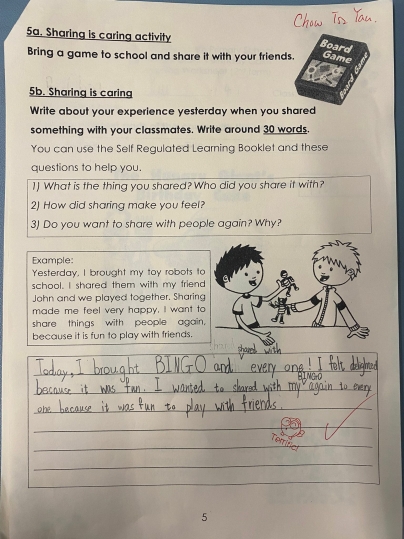 Chow Tsz Yau.
5a. Sharing is caring activity
Bring a game to school and share it with your friends.
Board Game
Board Game
5b. Sharing is caring
Write about your experience yesterday when you shared
something with your classmates. Write around 30 words.
You can use the Self Regulated Learning Booklet and these
questions to help you.
1) What is the thing you shared? Who did you share it with?
2) How did sharing make you feel?
3) Do you want to share with people again? Why?
Example:
Yesterday, I brought my toy robots to
school. I shared them with my friend
John and we played together. Sharing
made me feel very happy. I want to
share things with people again,
because it is fun to play with friends.
shared with
Today, I brought BINGO and every one! I felt delighted
BINGO
because it was fun. I wanted to shared with my again to every
one because it was fun to play with friends.
Terrific!
5